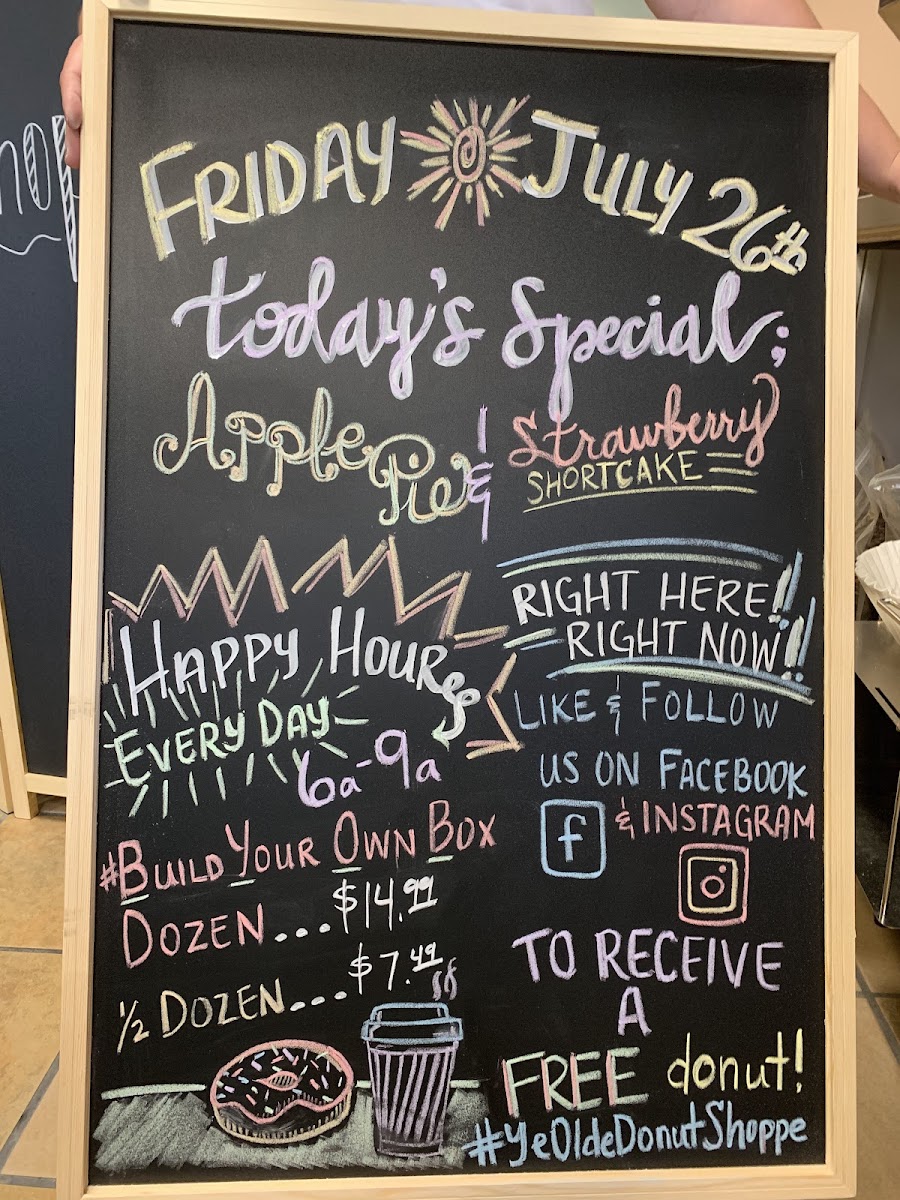 FRIDAY JULY 26th
Today's Special;
Apple Pie & Strawberry
SHORTCAKE
HAPPY HOURS
EVERY DAY
6a-9a
#BUILD YOUR OWN BOX
DOZEN...$14.99
1/2 DOZEN...$7.49
RIGHT HERE!!
RIGHT NOW!!
LIKE & FOLLOW
US ON FACEBOOK
f & INSTAGRAM
TO RECEIVE
A
FREE donut!
#YeOldeDonutShoppe